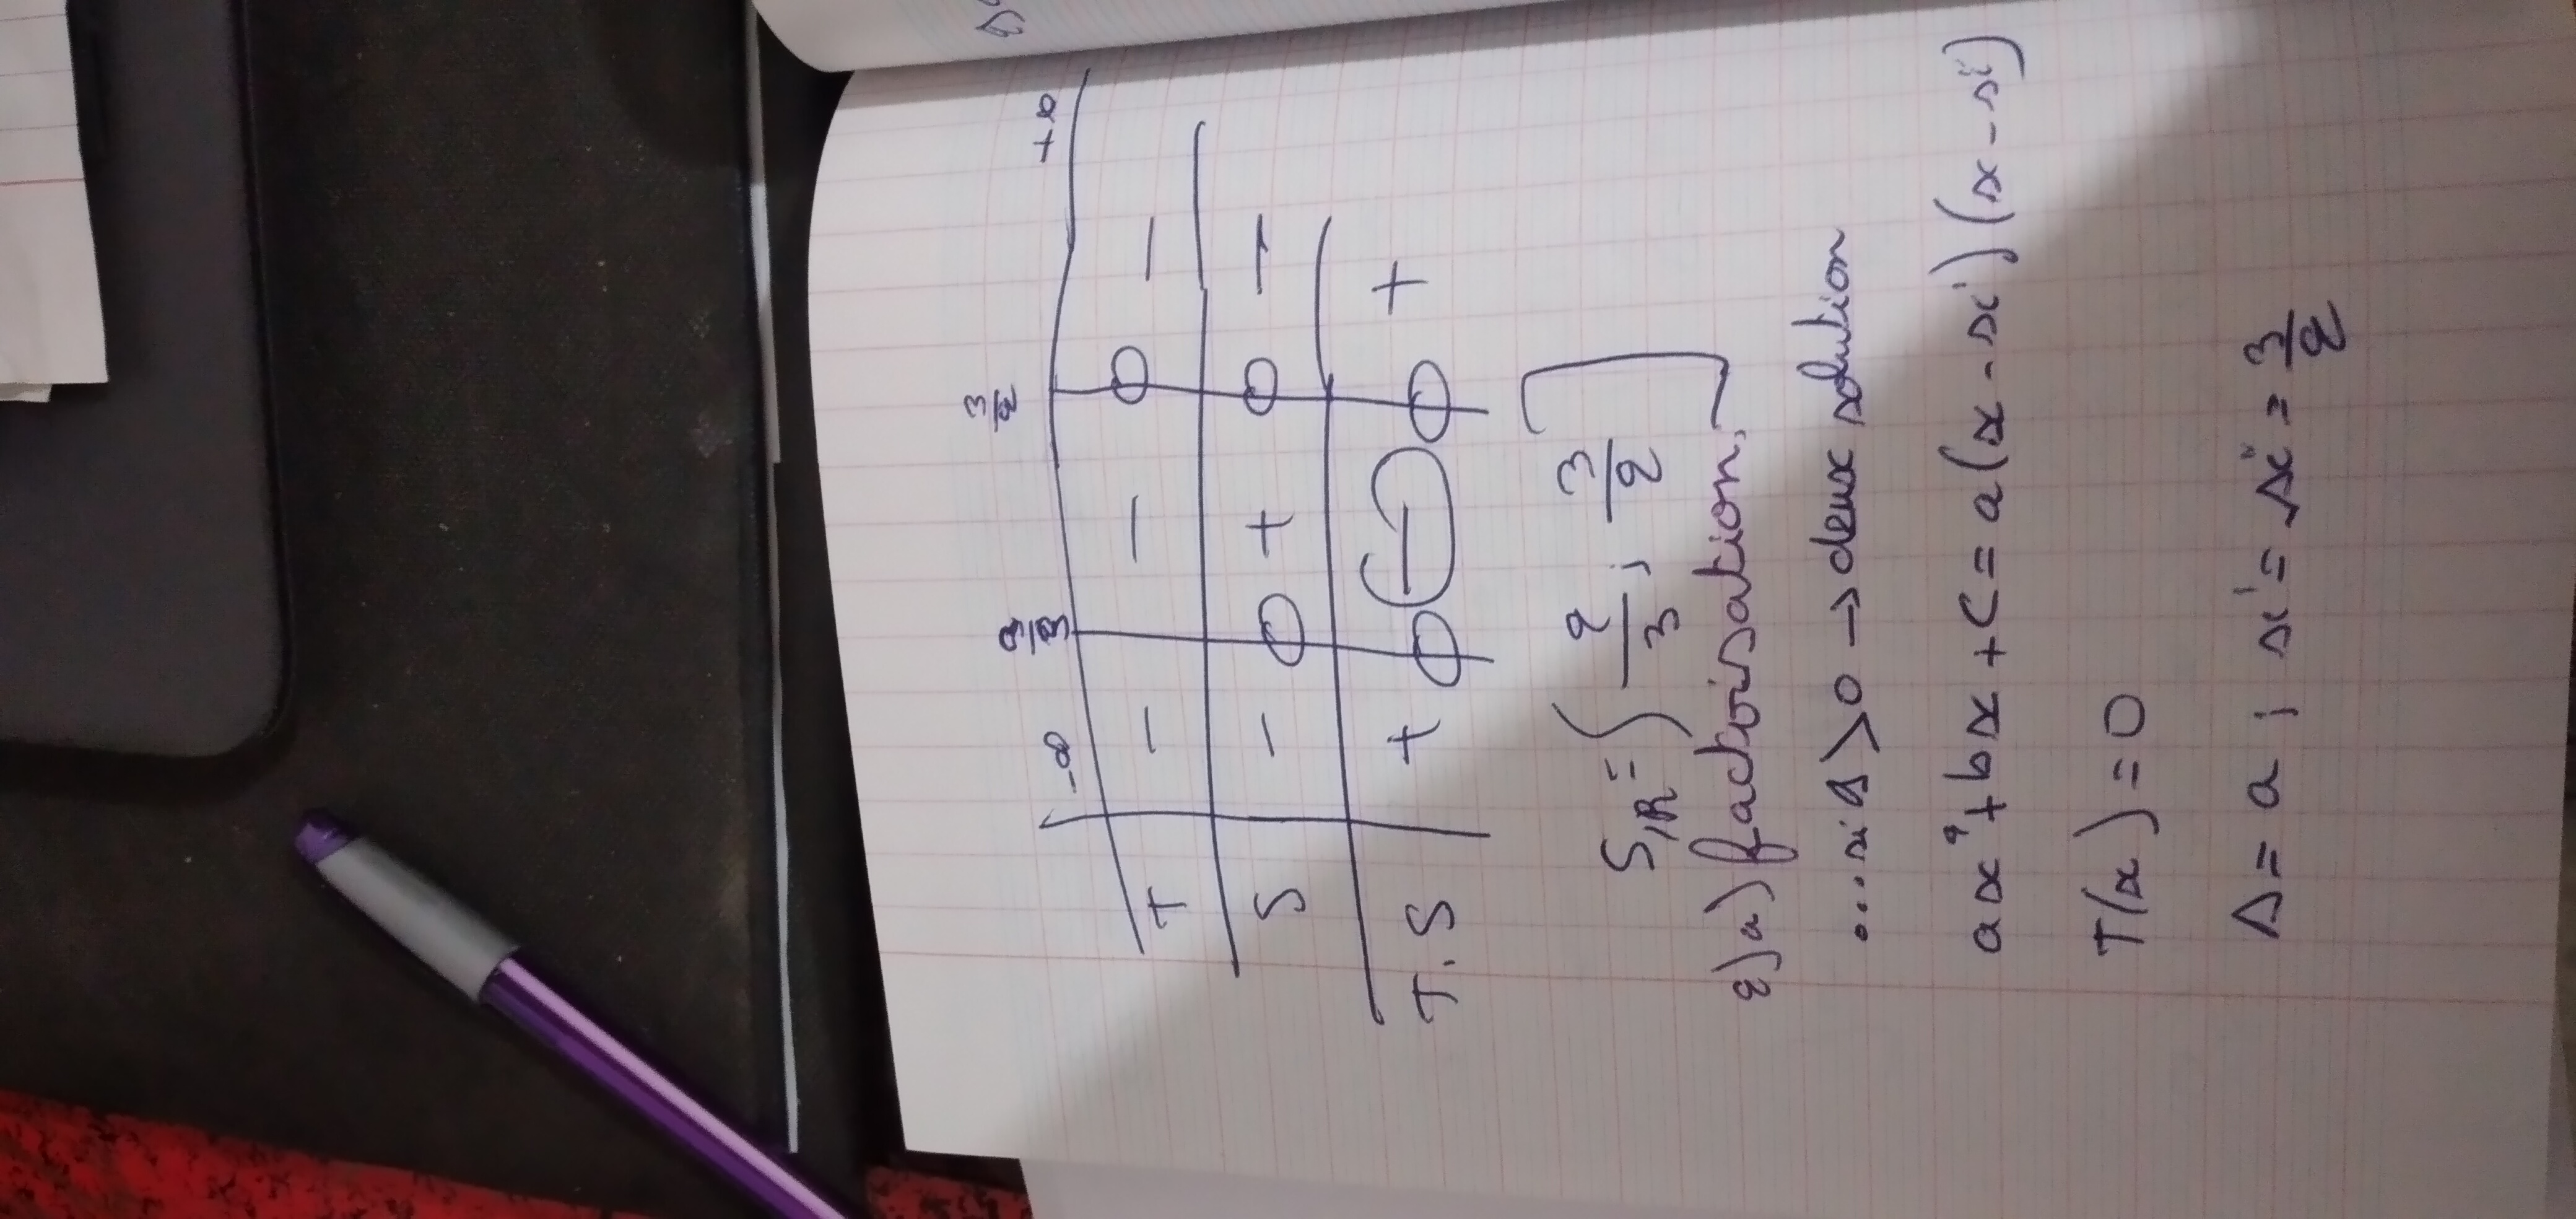 -∞ 2/3 3/2 +∞
T - - 0 - 
S - 0 + 0 -
T.S + 0 (-) 0 +
S_IR = ] 2/3 ; 3/2 [
2) a) factorisation.
•...si Δ>0 → deux solution
ax²+bx+c = a(x-x')(x-x'')
T(x)=0
Δ = a ; x' = x'' = 3/2